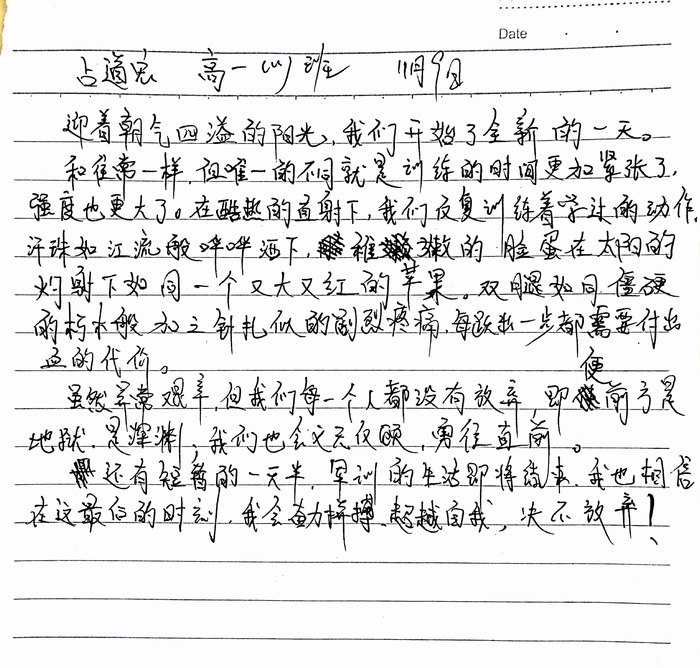 Date
占道宏 高一(1)班 11月9日
迎着朝气四溢的阳光,我们开始了全新的一天。
和往常一样,但唯一的不同就是训练的时间更加紧张了,
强度也更大了。在酷热的直射下,我们反复训练着学过的动作,
汗珠如江流般哗哗洒下,稚嫩的脸蛋在太阳的
灼射下如同一个又大又红的苹果。双腿如同僵硬
的朽木般加之针扎似的剧烈疼痛,每跃出一步都需要付出
血的代价。
虽然异常艰辛,但我们每一个人都没有放弃,即便前方是
地狱,是深渊,我们也会义无反顾,勇往直前。
还有短暂的一天半,军训的生活即将结束,我也相信
在这最后的时刻,我会奋力拼搏,超越自我,决不放弃!